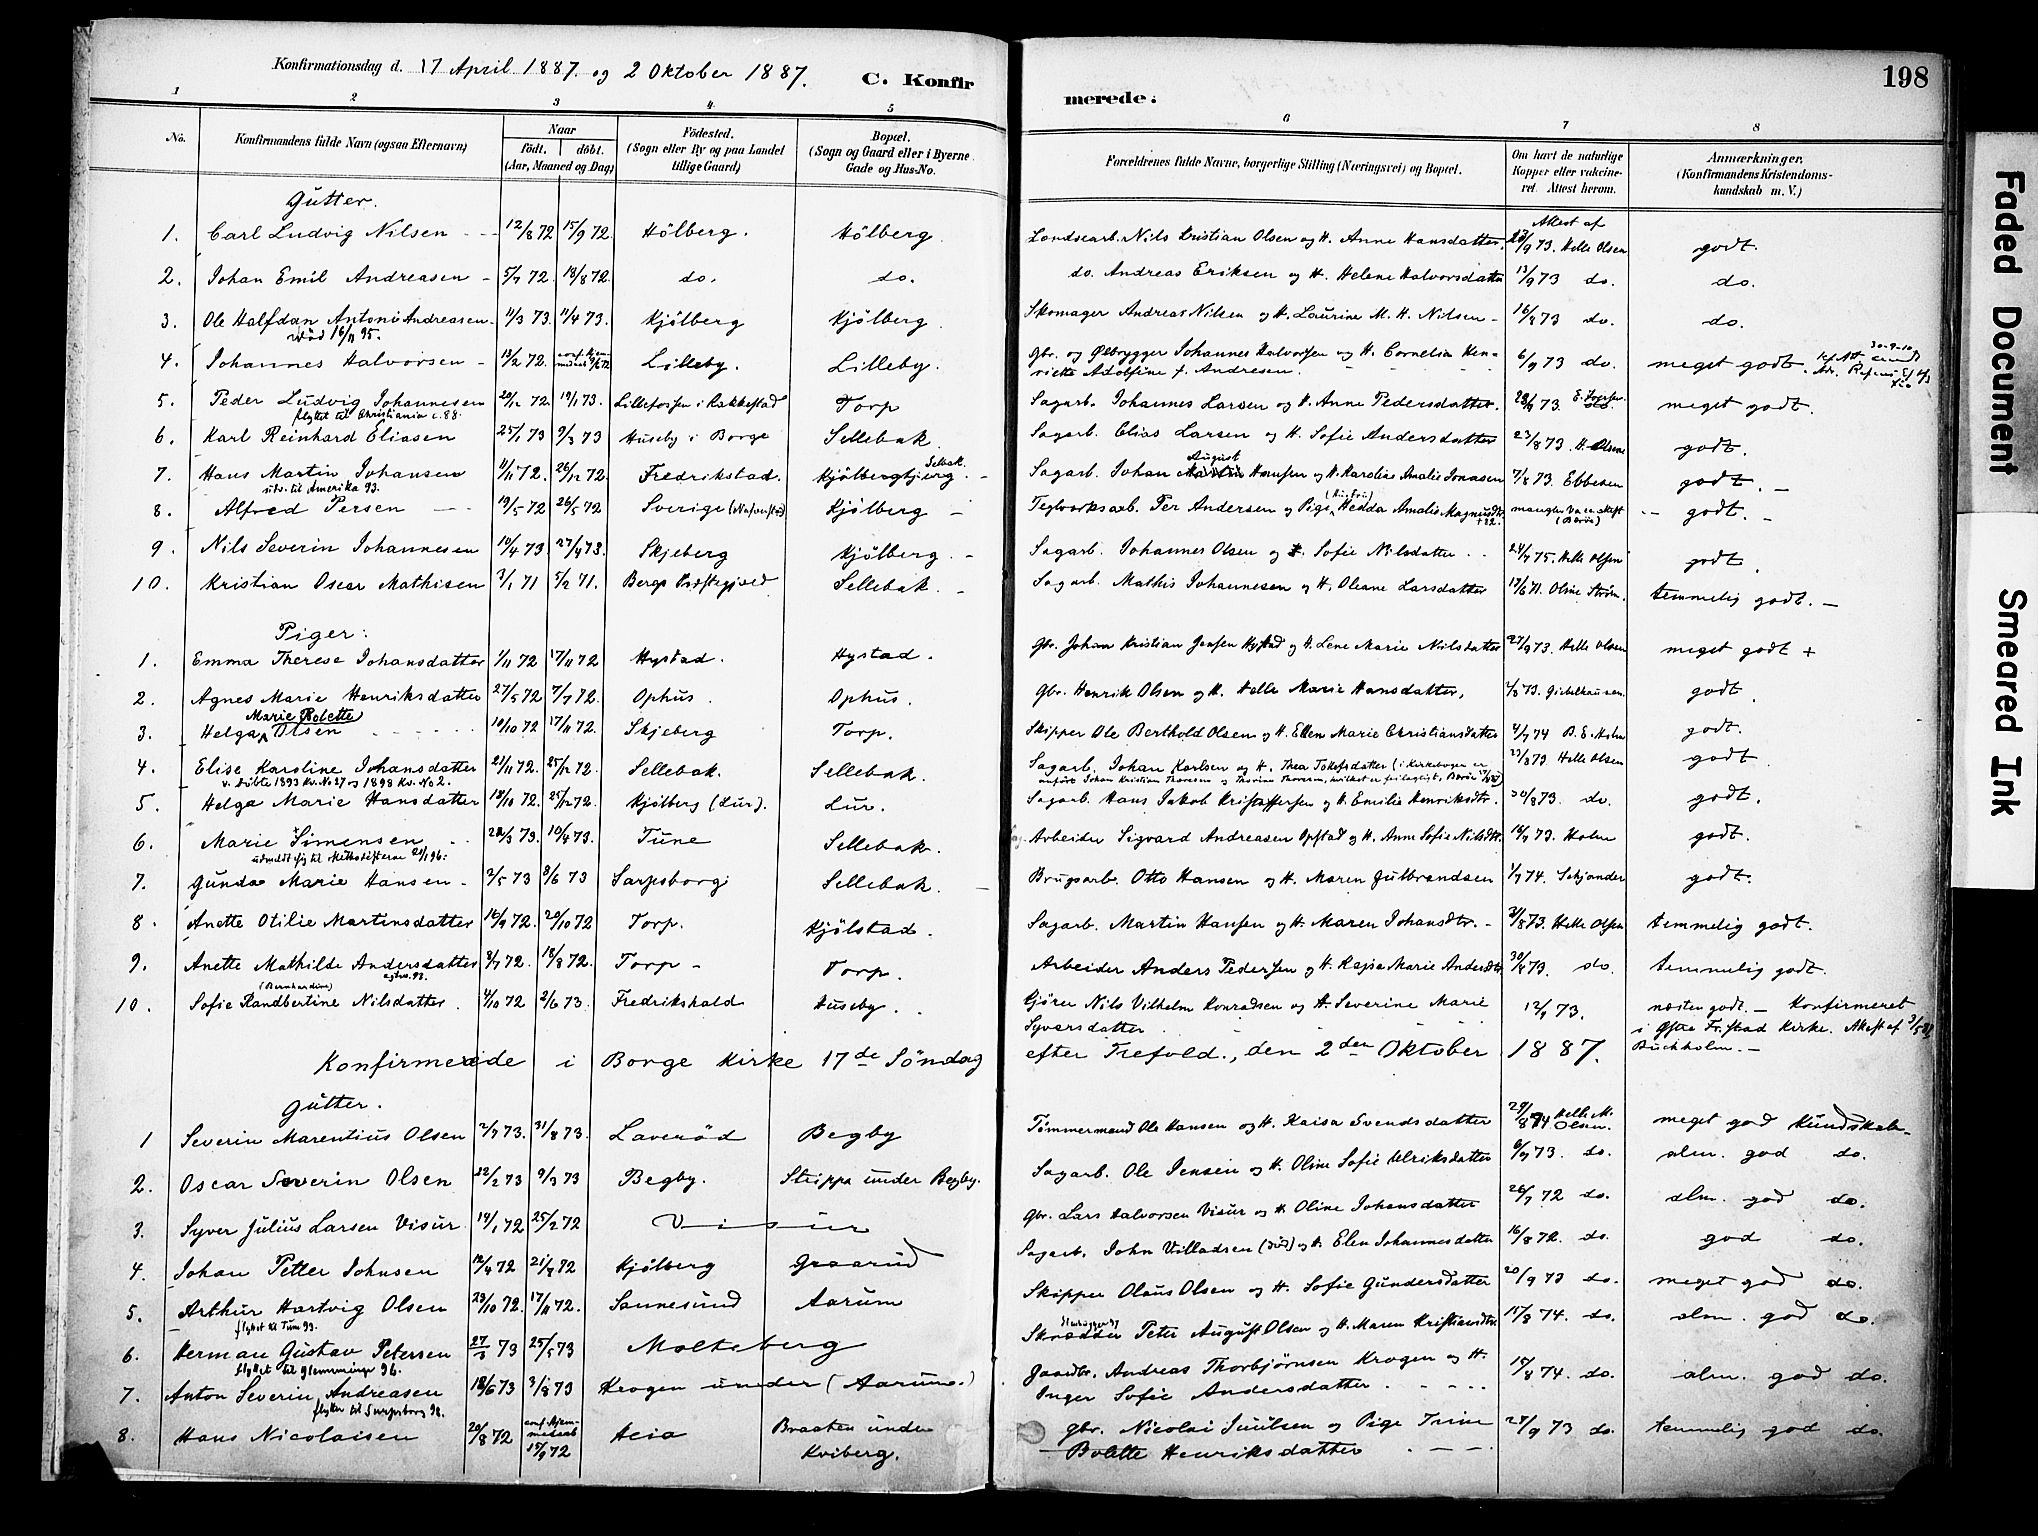 Konfirmationsdag d. 17 April 1887. og 2 Oktober 1887. C. Konfir
merede. 198
1 2 3 4 5 6 7 8
No. Konfirmandens fulde Navn (ogsaa Efternavn) Naar födt. döbt. (Aar, Maaned og Dag) Födested. (Sogn eller By og paa Landet tillige Gaard) Bopæl. (Sogn og Gaard eller i Byerne Gade og Hus-No. Forældrenes fulde Navne, borgerlige Stilling (Næringsvei) og Bopæl. Om havt de naturlige Kopper eller vaccineret. Attest herom. Anmærkninger. (Konfirmandens Kristendomskundskab m. V.)
Gutter.
1. Carl Ludvig Nilsen 12/8 72 15/9 72. Hölberg. Hölberg. Landsearb. Nils Kristian Olsen og H. Anne Hansdatter. Attest af /9 73. Helle Olsen godt.
2. Johan Emil Andreasen 5/7 72. 18/8 72. do. do. do. Andreas Eriksen og H. Helene Halvorsdatter 13/9 73 do. do.
3. Ole Halfdan Antoni Andreasen 11/3 73. 11/4 73. Kjölberg Kjölberg Skomager Andreas Nilsen og H. Laurine M. H. Nilsen 16/8 73 do. do.
död 16/11 95.
4. Johannes Halvorsen 13/2 72. Lilleby. Lilleby. Gbr. og Ølbrygger Johannes Halvorsen og H. Cornelia Hen- 6/9 73 do. meget godt.
riette Adolfine f. Andresen.
5. Peder Ludvig Johannesen 20/12 72 19/1 73. Lillefossen i Rakkestad Torp Sagarb. Johannes Larsen og H. Anne Pedersdatter. 73. meget godt.
flyttet til Christiania c. 88.
6. Karl Reinhard Eliasen 25/1 73 9/3 73 Huseby i Borge Sellebak. Sagarb. Elias Larsen og H. Sofie Andersdatter 23/8 73. H. Olsen godt.
7. Hans Martin Johansen 11/11 72. 26/12 72. Fredrikstad. Kjölbergbjerg. Selbak. Sagarb. Johan August Hansen og H. Karoline Amalie Jonasen 7/8 73. Ebbesen godt.
udv. til Amerika 93.
8. Alfred Persen 19/5 72 26/5 72 Sverige Kjölberg Teglværksarb. Per Andersen og Pige Hedda Amalie Magnusdtr mangler Vacc.attest (Borge) godt.
9. Nils Severin Johannesen 10/4 73. 27/4 73. Skjeberg Kjölberg. Sagarb. Johannes Olsen og H. Sofie Nilsdatter 24/7 75. Helle Olsen godt.
10. Kristian Oscar Mathisen 2/1 71 5/2 71. Berg Præstegjæld Sellebak. Sagarb. Mathis Johannesen og H. Oleane Larsdatter 17/6 71. Oline Ström. temmelig godt.
Piger:
1. Emma Therese Johansdatter 1/11 72 17/11 72 Hystad. Hystad. Gbr. Johan Kristian Jensen Hystad og H. Lene Marie Nilsdatter 27/9 73. Helle Olsen meget godt +
2. Agnes Marie Henriksdatter 27/5 72 7/7 72. Ophus. Ophus. Gbr. Henrik Olsen og H. Helle Marie Hansdatter, 73. godt.
Marie Bolette
3. Helga Olsen 10/10 72 17/11 72. Skjeberg Torp. Skipper Ole Berthold Olsen og H. Ellen Marie Christiansdatter 4/7 74 B. E. Holm godt.
4. Elise Karoline Johansdatter 21/11 72. 25/12 72. Sellebak. Sellebak. Sagarb. Johan Karlsen og H. Thea Tolefsdatter (i Kirkebogen er 23/8 73 Helle Olsen godt.
v. Döbte 1893 Kv. No 27 og 1898 Kv. No 2. anfört Johan Kristian Thoresen og Thorine Thoresen, hvilket er feilagtigt,
5. Helga Marie Hansdatter 18/10 72. 25/12 72. Kjölberg (Lur). Lur. Sagarb. Hans Jakob Kristoffersen og H. Emilie Henriksdtr. 30/8 73. do. godt.
6. Marie Simensen 22/3 73. 10/4 73. Tune Sellebak. Arbeider Sigvard Andreasen Opstad og H. Anne Sofie Nilsdtr. 14/9 73. Holm godt.
udmeldt sig til Methodisterne 21/1 96.
7. Gunda Marie Hansen 2/5 73 8/6 73 Sarpsborg Sellebak. Brugsarb. Otto Hansen og H. Maren Gulbrandsen 1/7 74. Schjander godt.
8. Anette Otilie Martinsdatter 16/9 72. 20/10 72 Torp. Kjölstad. Sagarb. Martin Hansen og H. Maren Johansdtr. 3/8 73. Helle Olsen temmelig godt.
9. Anette Mathilde Andersdatter 8/7 72. 18/8 72. Torp Torp. Arbeider Anders Pedersen og H. Kajsa Marie Andersdtr 30/8 73. do. temmelig godt.
10. Sofie Randbertine (Bernhardine) Nilsdatter. 4/10 72 2/6 73. Fredrikshald Huseby. Kjörer Nils Vilhelm Konradsen og H. Severine Marie 12/9 73. næsten godt. Konfirmeret
Syversdatter i Östre Fr.stad Kirke. Attest af 3/5 87
Buchholm.
Konfirmerede i Borge Kirke 17de Söndag efter Trefold., den 2den Oktober 1887.
Gutter.
1 Severin Marentius Olsen 2/7 73. 31/8 73. Laveröd Begby Tömmermand Ole Hansen og H. Kaisa Svendsdatter 29/8 74 Helle M. Olsen. meget god Kundskab
2. Oscar Severin Olsen 22/2 73 9/3 73 Begby. Strippa under Begby. Sagarb. Ole Jensen og H. Oline Sofie Ulriksdatter 6/9 73. do. alm. god do.
3. Syver Julius Larsen Visur 14/1 72 25/2 72 Visur Gbr. Lars Halvorsen Visur og H. Oline Johansdatter 26/7 72 do. alm. god do.
4. Johan Petter Johnsen 12/4 72 21/4 72 Kjölberg Graarud Sagarb. John Villadsen (död) og H. Elen Johannesdatter 16/8 72. do. god do.
5. Arthur Hartvig Olsen 23/10 72. 17/11 72. Sannesund Aarum Skipper Olaus Olsen og H. Sofie Gundersdatter 20/9 73 do. meget god do.
flyttet til Tune 93.
6. Herman Gustav Petersen 27/3 73 25/5 73 Molteberg Skrædder Peter August Olsen og H. Maren Kristiansdtr 15/8 74. do. alm. god do.
flyttet til Glemminge 96.
7. Anton Severin Andreasen 18/6 73 3/8 73 Krogen under (Aarum.) Gaardbr. Andreas Thorbjörnsen Krogen og H. 15/8 74. do. alm. god do.
flyttet til Sarpsborg 98. Inger Sofie Andersdatter
8. Hans Nicolaisen 20/8 72 15/9 72 Heia Braaten under Gbr. Nicolai Juulsen og Pige Trine 27/9 73 do. temmelig god do.
Kviberg. Bolette Henriksdatter
Faded Document Smeared Ink